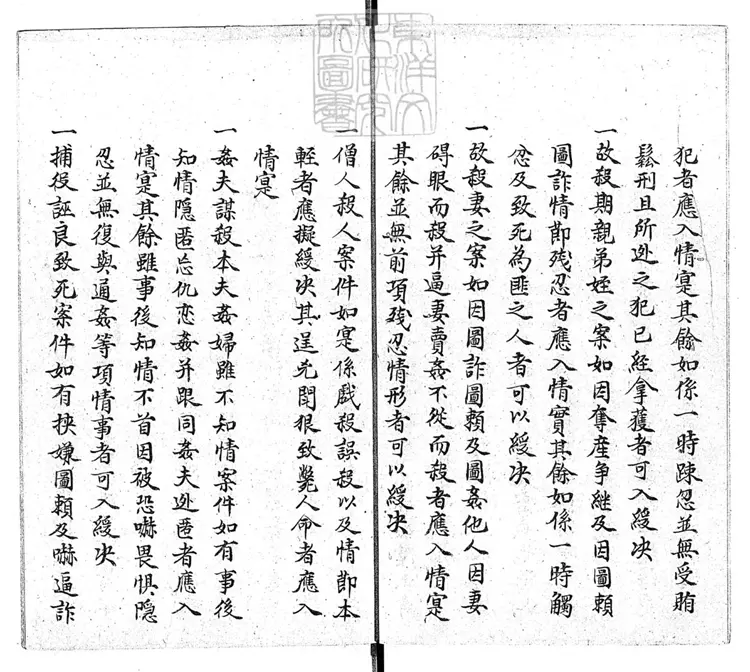 犯者應入情寔其餘如係一時踈忽並無受賄
鬆刑且所逃之犯已經拿獲者可入緩决
一故殺期親弟姪之案如因奪産争継及因圖賴
圖詐情節殘忍者應入情實其餘如係一時觸
忿及致死為匪之人者可以緩决
一故殺妻之案如因圖詐圖賴及圖姦他人因妻
碍眼而殺并逼妻賣姦不從而殺者應入情寔
其餘並無前項殘忍情形者可以緩决
一僧人殺人案件如寔係戲殺誤殺以及情節本
輕者應擬緩决其逞兇鬥狠致斃人命者應入
情寔
一姦夫謀殺本夫姦婦雖不知情案件如有事後
知情隱匿忘仇恋姦并跟同姦夫逃匿者應入
情寔其餘雖事後知情不首因被恐嚇畏惧隱
忍並無復與通姦等項情事者可入緩决
一捕役誣良致死案件如有挾嫌圖賴及嚇逼詐
東洋文化研究所圖書